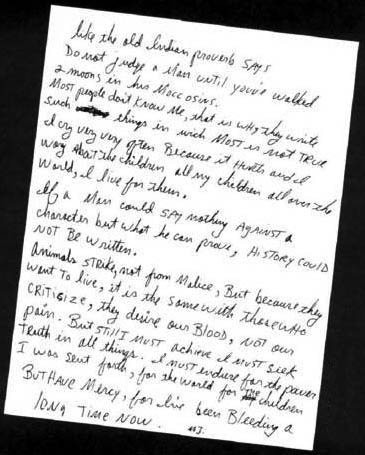 like the old Indian proverb SAYS
Do not judge a Man until you've walked
2 moons in his Moccosins.
Most people don't know Me, that is wHy they write
such things in wich Most is not TRUE
I cry very very often Because it Hurts and I
worry ABout the children all my children all over the
World, I live for them.
If a Man could SAY nothing AgAinst a
character but what he can prove, HiSTORY COULD
NOT Be written.
Animals STRIKE, not from Malice, But because they
want To live, it is the same with those who
CRiTiSiZE, they desire our BLOOD, NOT our
pain. But STill I Must achieve I MUST Seek
Truth in all things. I must endure for the power
I was sent forth, for the World for the children
BUT HAVE Mercy, for I've been Bleeding a
long Time Now.
MJ.